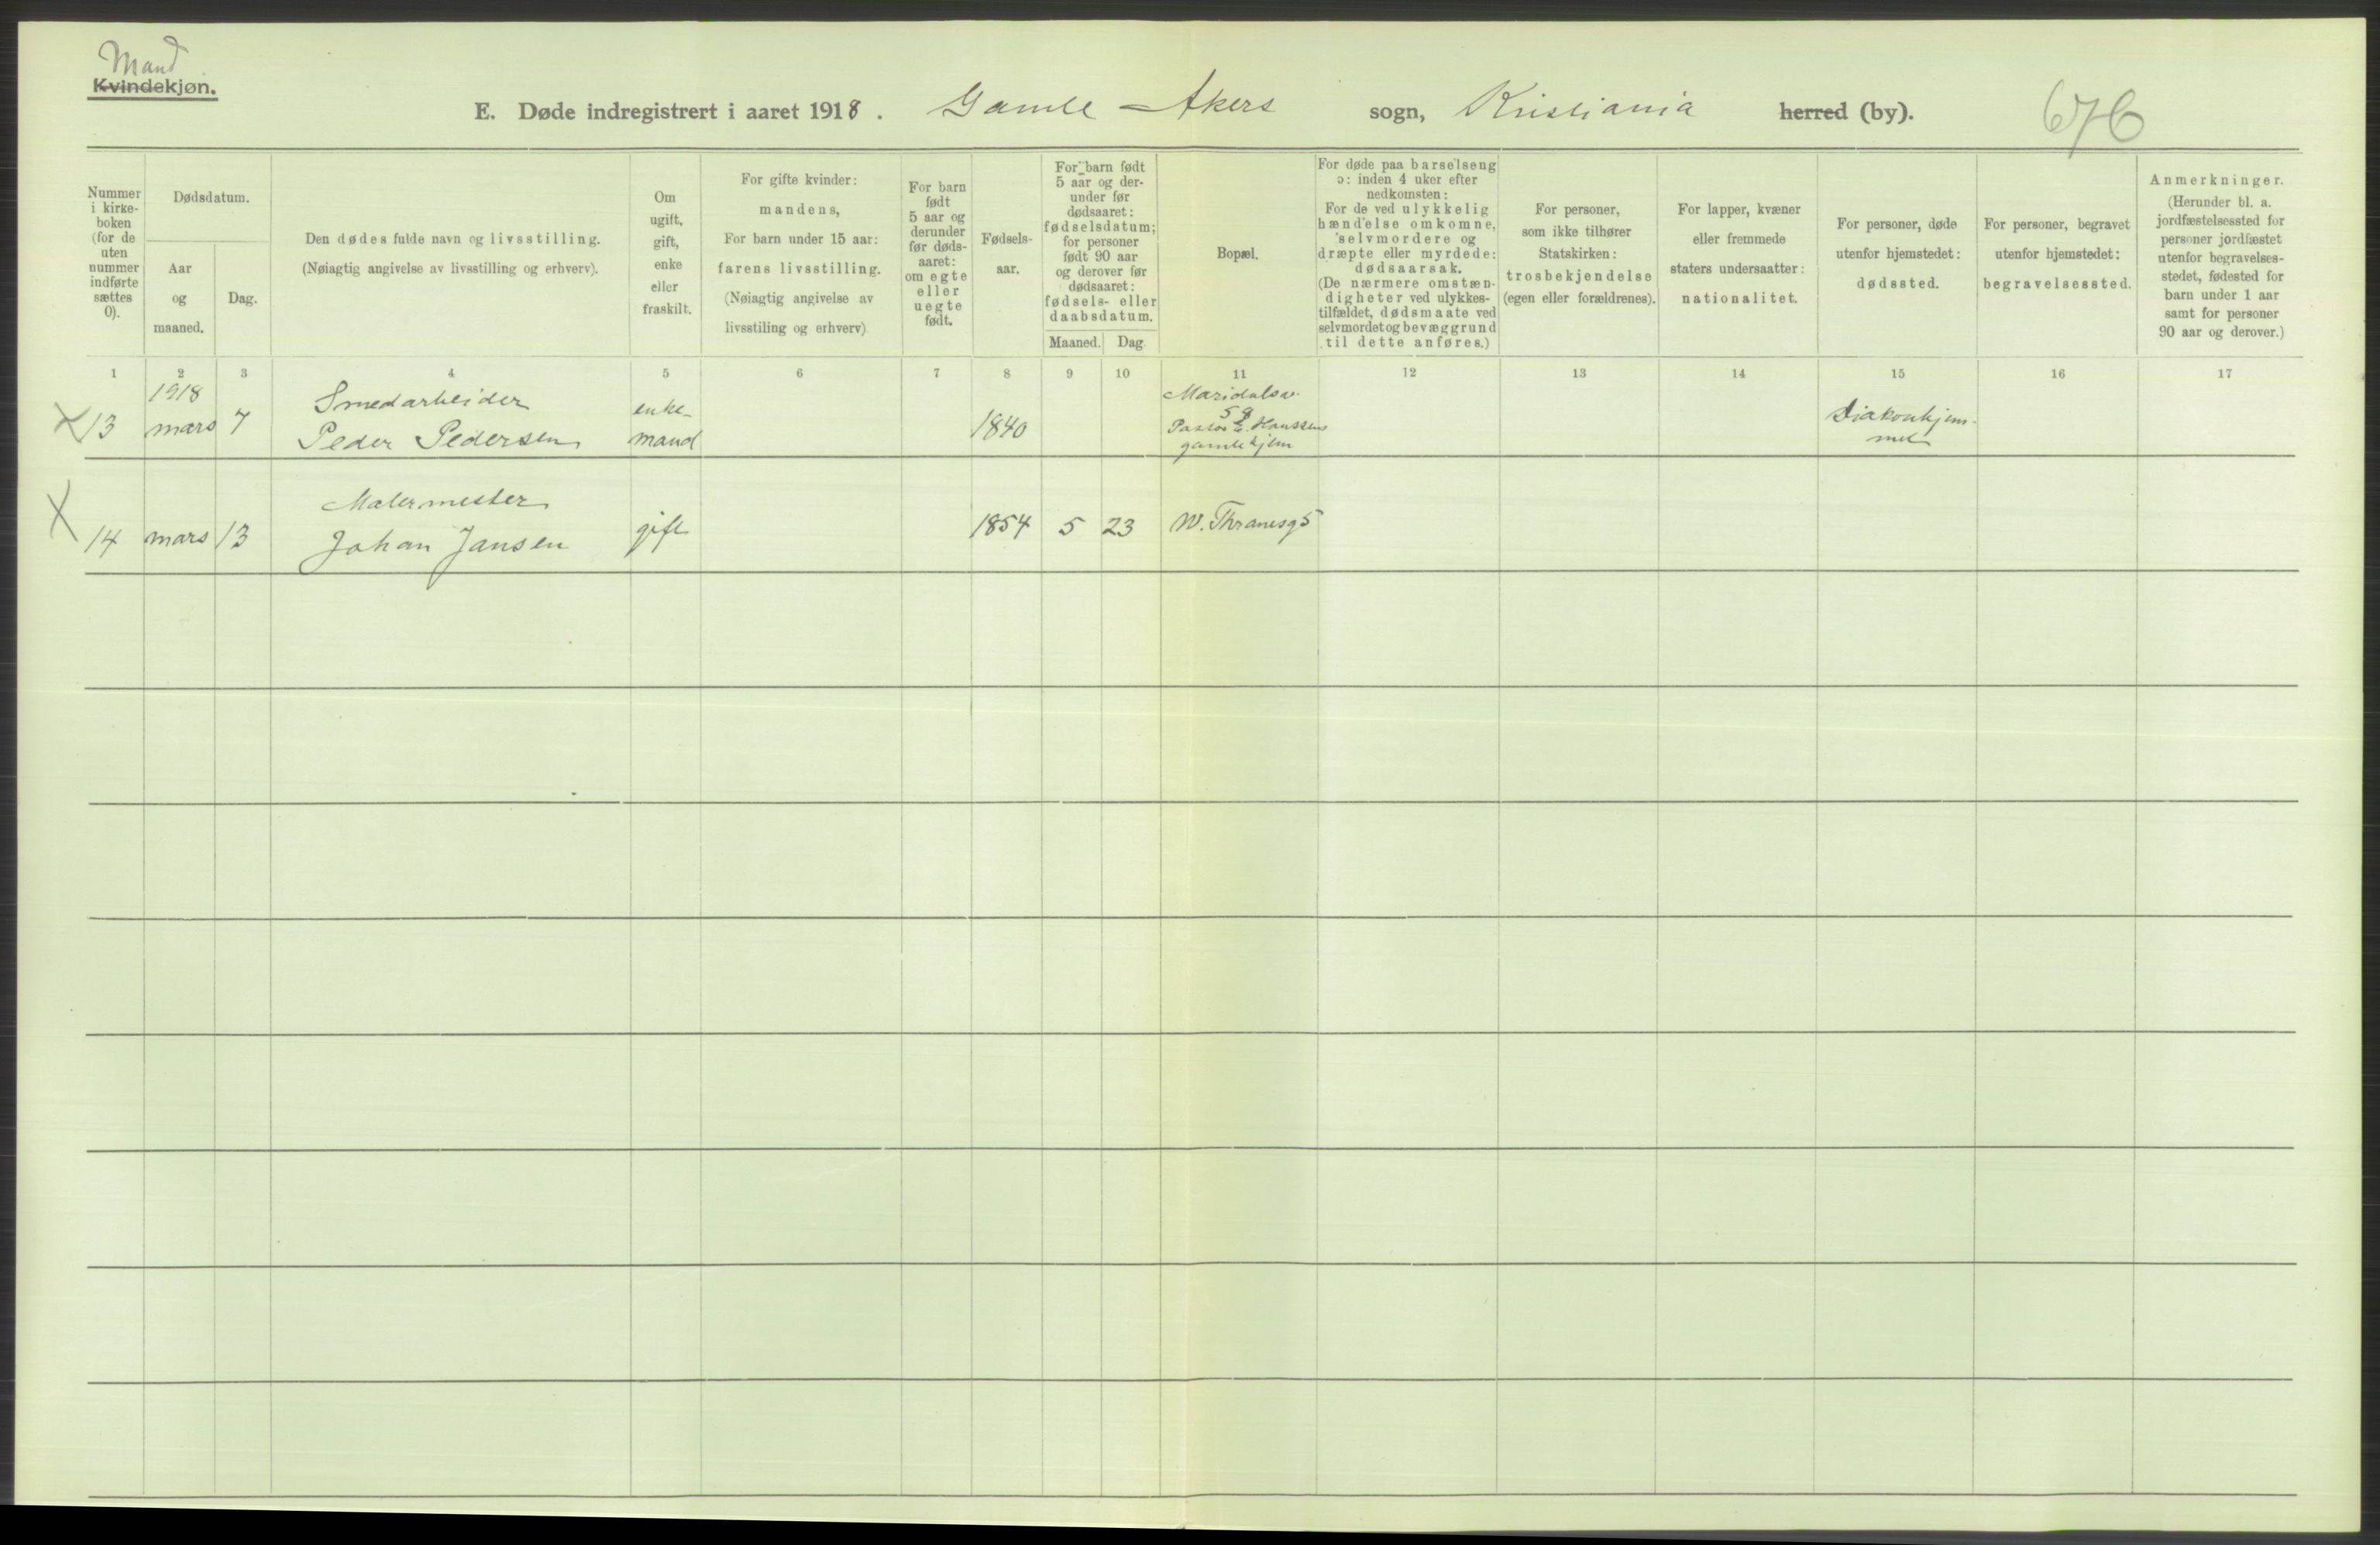 Mand
Kvindekjøn.
E. Døde indregistrert i aaret 1918. Gamle Akers sogn, Kristiania herred (by). 676
Nummer
i kirke-
boken
(for de
uten
nummer
indførte
sættes
0).
Dødsdatum.
Aar
og
maaned.
Dag.
Den dødes fulde navn og livsstilling.
(Nøiagtig angivelse av livsstilling og erhverv).
Om
ugift,
gift,
enke
eller
fraskilt.
For gifte kvinder:
mandens,
For barn under 15 aar:
farens livsstilling.
(Nøiagtig angivelse av
livsstiling og erhverv)
For barn
født
5 aar og
derunder
før døds-
aaret:
om egte
eller
uegte
født.
Fødsels-
aar.
For barn født
5 aar og der-
under før
dødsaaret:
fødselsdatum;
for personer
født 90 aar
og derover før
dødsaaret:
fødsels- eller
daabsdatum.
Maaned. Dag
Bopæl.
For døde paa barselseng
ɔ: inden 4 uker efter
nedkomsten:
For de ved ulykkelig
hændelse omkomne,
selvmordere og
dræpte eller myrdede:
dødsaarsak.
(De nærmere omstæn-
digheter ved ulykkes-
tilfældet, dødsmaate ved
selvmordet og bevæggrund
til dette anføres.)
For personer,
som ikke tilhører
Statskirken:
trosbekjendelse
(egen eller forældrenes).
For lapper, kvæner
eller fremmede
staters undersaatter:
nationalitet.
For personer, døde
utenfor hjemstedet:
dødssted.
For personer, begravet
utenfor hjemstedet:
begravelsessted.
Anmerkninger.
(Herunder bl. a.
jordfæstelsessted for
personer jordfæstet
utenfor begravelses-
stedet, fødested for
barn under 1 aar
samt for personer
90 aar og derover.)
1 2 3 4 5 6 7 8 9 10 11 12 13 14 15 16 17
1918
X 13 mars 7
Smedarbeider
Peder Pedersen
enke-
mand
1840
Maridalsv.
59
Pastor E. Hanssens
gamlehjem
Diakonhjem-
met
X 14 mars 13
Malermester
Johan Jansen
gift
1854 5 23 W. Thranesg 5